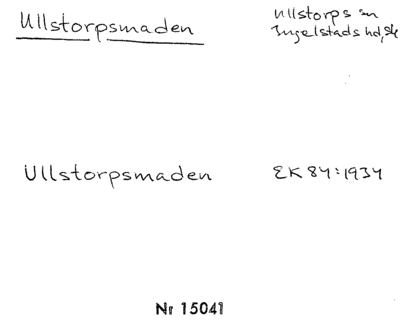 Ullstorpsmaden
Ullstorps sn
Ingelstads hd, Sk
Ullstorpsmaden
EK 84:1934
Nr 15041